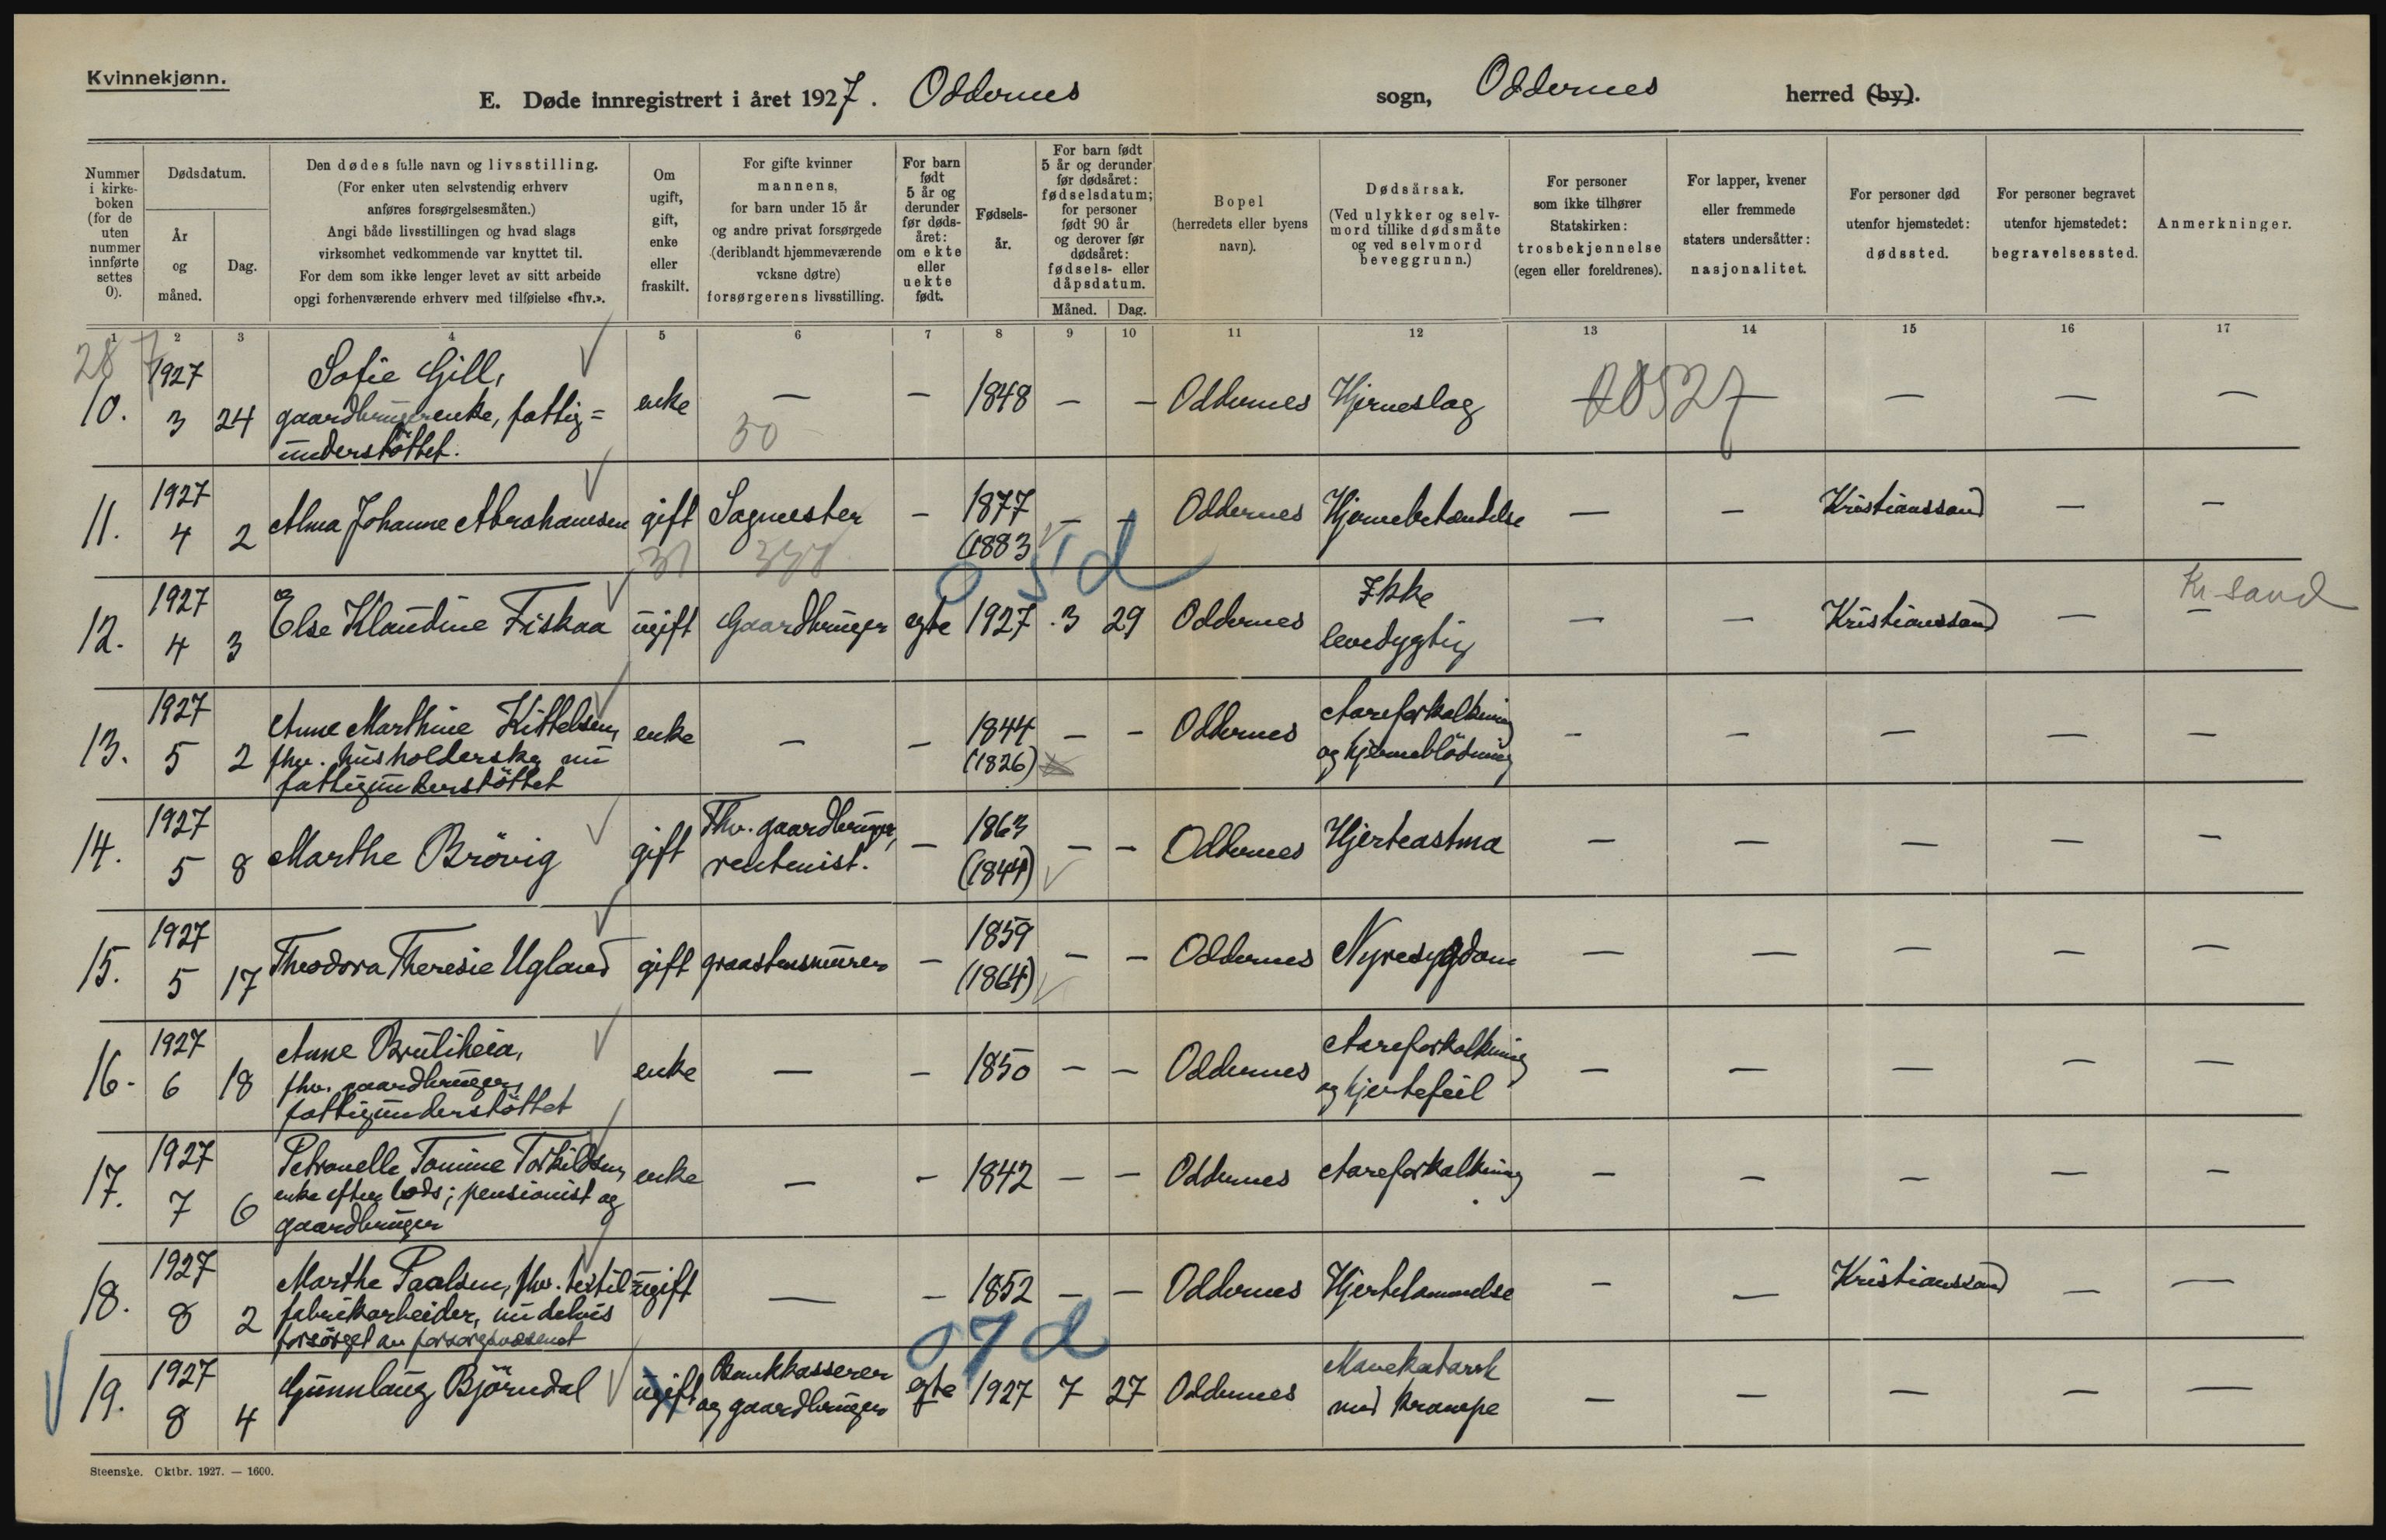 Kvinnekjønn.
E. Døde innregistrert i året 1927. Oddernes sogn, Oddernes herred (by).
Nummer i kirkeboken (for de uten nummer innførte settes 0).
Dødsdatum.
År og måned.
Dag.
Den dødes fulle navn og livsstilling.
(For enker uten selvstendig erhverv
anføres forsørgelsesmåten.)
Angi både livsstillingen og hvad slags
virksomhet vedkommende var knyttet til.
For dem som ikke lenger levet av sitt arbeide
opgi forhenværende erhverv med tilføielse «fhv.».
Om ugift, gift, enke eller fraskilt.
For gifte kvinner
mannens,
for barn under 15 år
og andre privat forsørgede
(deriblandt hjemmeværende
vcksne døtre)
forsørgerens livsstilling.
For barn født 5 år og derunder før dødsåret: om ekte eller uekte født.
Fødselsår.
For barn født
5 år og derunder
før dødsåret:
fødselsdatum;
for personer
født 90 år
og derover før
dødsåret:
fødsels- eller
dåpsdatum.
Måned. Dag.
Bopel
(herredets eller byens
navn).
Dødsårsak.
(Ved ulykker og selvmord tillike dødsmåte
og ved selvmord
beveggrunn.)
For personer
som ikke tilhører
Statskirken:
trosbekjennelse
(egen eller foreldrenes).
For lapper, kvener
eller fremmede
staters undersåtter:
nasjonalitet.
For personer død
utenfor hjemstedet:
dødssted.
For personer begravet
utenfor hjemstedet:
begravelsessted.
Anmerkninger.
1 2 3 4 5 6 7 8 9 10 11 12 13 14 15 16 17
287
10. 1927 3 24 Sofie Gill, gaardbrugerenke, fattig=understøttet. enke — 50 — 1848 — — Oddernes Hjerneslag 20527 — — —
11. 1927 4 2 Alma Johanne Abrahamsen gift Sagmester — 1877 (1883 — — Oddernes Hjernebetændelse — — Kristianssand — —
5 d
12. 1927 4 3 Else Klaudine Fiskaa ugift Gaardbruger egte 1927 3 29 Oddernes Ikke levedygtig — — Kristianssand — Kr.sand
13. 1927 5 2 Anne Marthine Kittelsen, fhv. husholderske, nu fattigunderstøttet enke — — 1844 (1826) — — Oddernes Aareforkalkning og hjerneblødning — — — — —
14. 1927 5 8 Marthe Brøvig gift Fhv. gaardbruger, rentenist. — 1863 (1844) — — Oddernes Hjerteastma — — — — —
15. 1927 5 17 Theodora Theresie Ugland gift graastensmurer — 1859 (1864) — — Oddernes Nyresygdom — — — — —
16. 1927 6 18 Anne Brutiheia, fhv. gaardbruger, fattigunderstøttet enke — — 1850 — — Oddernes Aareforkalkning og hjertefeil — — — — —
17. 1927 7 6 Petronelle Tomine Torkildsen, enke efter lods; pensionist og gaardbruger enke — — 1842 — — Oddernes Aareforkalkning — — — — —
18. 1927 8 2 Marthe Paalsen, fhv. textilfabrikarbeider, nu delvis forsørget av forsorgsvæsenet ugift — — 1852 — — Oddernes Hjertelammelse — — Kristianssand — —
07 d
19. 1927 8 4 Gunnlaug Bjørndal ugift Bankkasserer og gaardbruger egte 1927 7 27 Oddernes Mavekatarrh med krampe — — — — —
Steenske. Oktbr. 1927. — 1600.